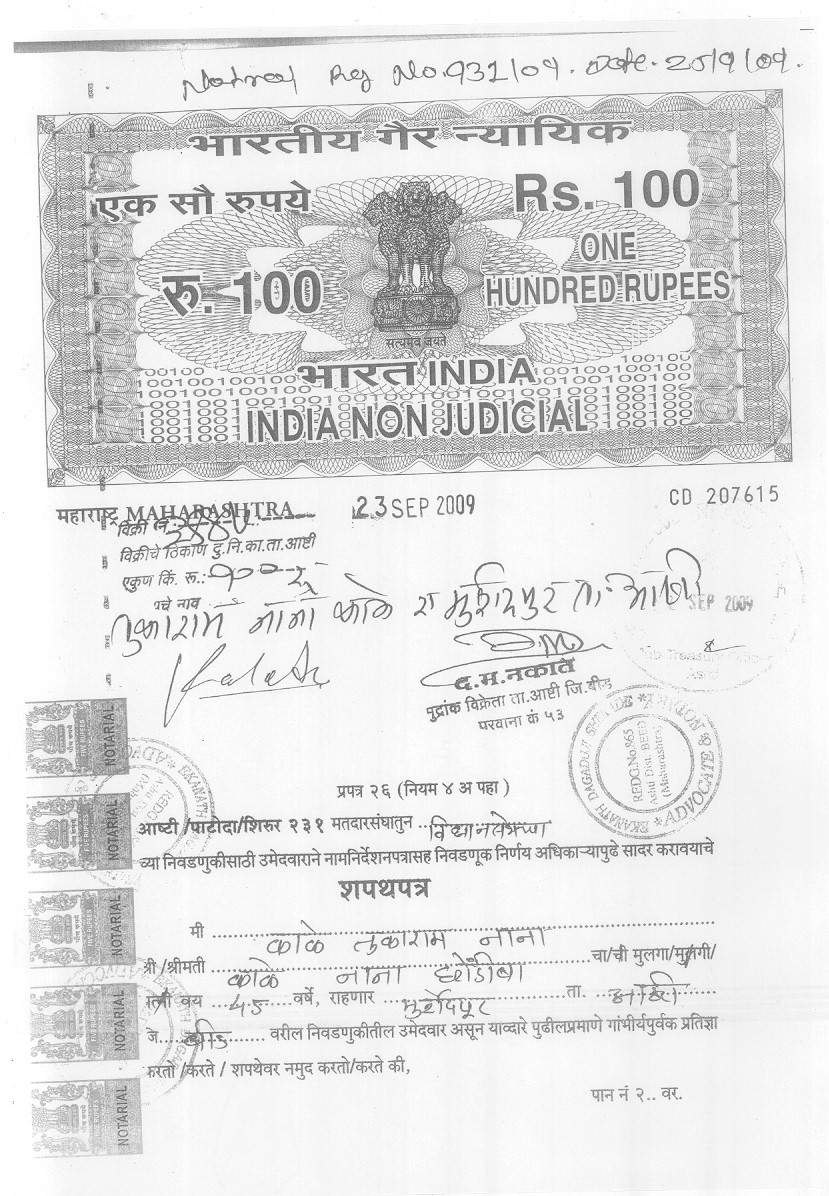 Notreal Reg No. 932/09. Date. 25/9/09.
भारतीय गैर न्यायिक
एक सौ रुपये
Rs. 100
रु. 100
ONE
HUNDRED RUPEES
सत्यमेव जयते
भारत INDIA
INDIA NON JUDICIAL
महाराष्ट्र MAHARASHTRA
23 SEP 2009
CD 207615
विक्री नं.
विक्रीचे ठिकाण दु.नि.का.ता.आष्टी
एकुण किं. रू.: १००रु
चे नाव
तुकाराम नाना काळे रा मुर्शदपुर ता. आष्टी
SEP 2009
Sub Treasury
Ashti
द.म.नकाते
मुद्रांक विक्रेता ता.आष्टी जि.बीड
परवाना कं ५३
EKANATH DAGADUJI SHINDE * ADVOCATE & NOTARY *
REDG.No.865
Dist. BEED
(Maharashtra)
NOTARIAL
NOTARIAL
NOTARIAL
NOTARIAL
NOTARIAL
प्रपत्र २६ (नियम ४ अ पहा )
आष्टी /पाटोदा/शिरुर २३१ मतदारसंघातुन ..विधानसभेच्या
व्या निवडणुकीसाठी उमेदवाराने नामनिर्देशनपत्रासह निवडणूक निर्णय अधिकाऱ्यापुढे सादर करावयाचे
शपथपत्र
मी काळे तुकाराम नाना
श्री /श्रीमती काळे नाना धोंडीबा चा/ची मुलगा/मुलगी/
पत्नी वय ..45.. वर्षे, राहणार मुर्शदपूर ता. आष्टी
जि. बीड वरील निवडणुकीतील उमेदवार असून याव्दारे पुढीलप्रमाणे गांभीर्यपुर्वक प्रतिज्ञा
करतो /करते / शपथेवर नमुद करतो/करते की,
पान नं २.. वर.